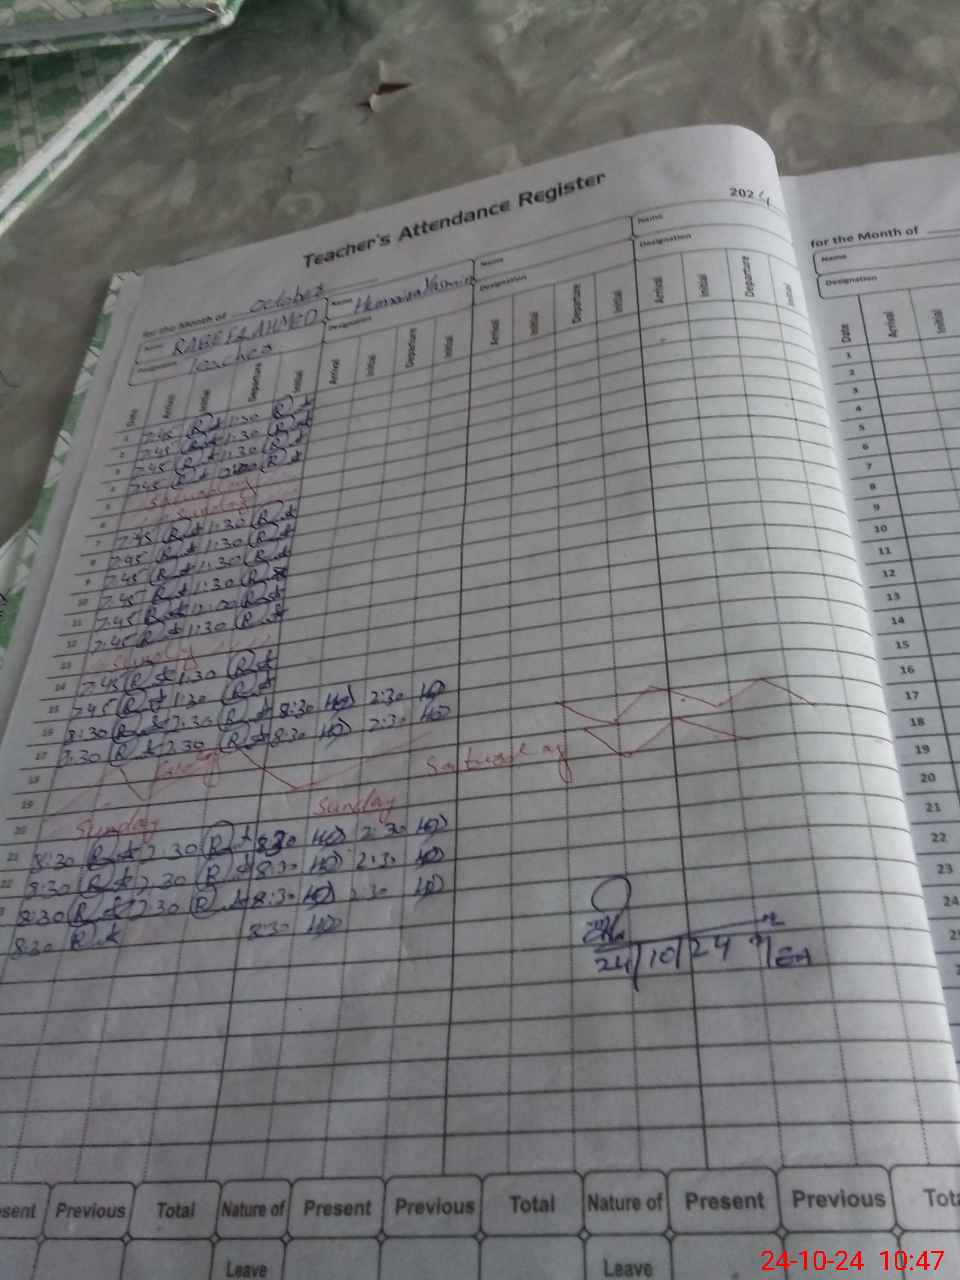 Teacher's Attendance Register
2024
for the Month of October
for the Month of
Name RABEEA AHMED Name Humaira Yasmin Name Name
Name
Designation Teacher Designation Designation Designation
Designation
Date Arrival Initial Departure Initial Arrival Initial Departure Initial Arrival Initial Departure Initial Arrival Initial Departure Initial
Date Arrival Initial
1 7:45 R.A 1:30 R.A
2 7:45 R.A 1:30 R.A
3 7:45 R.A 1:30 R.A
4 7:45 R.A R.A
5 Saturday
6 Sunday
7 7:45 R.A 1:30 R.A
8 7:45 R.A 1:30 R.A
9 7:45 R.A 1:30 R.A
10 7:45 R.A 1:30 R.A
11 7:45 R.A R.A
12 7:45 R.A 1:30 R.A
13 Sunday
14 7:45 R.A 1:30 R.A
15 7:45 R.A 1:30 R.A
16 8:30 R.A 2:30 R.A 8:30 2:30
17 8:30 R.A 2:30 R.A 8:30 2:30
18
19 Saturday
20 Sunday Sunday
21 8:30 R.A 2:30 R.A 8:30 2:30
22 8:30 R.A 2:30 R.A 8:30 2:30
8:30 R.A 2:30 R.A 8:30 2:30
8:30 R.A 8:30
24/10/24
1
2
3
4
5
6
7
8
9
10
11
12
13
14
15
16
17
18
19
20
21
22
23
24
Previous Total Nature of Leave Present Previous Total Nature of Leave Present Previous
24-10-24 10:47